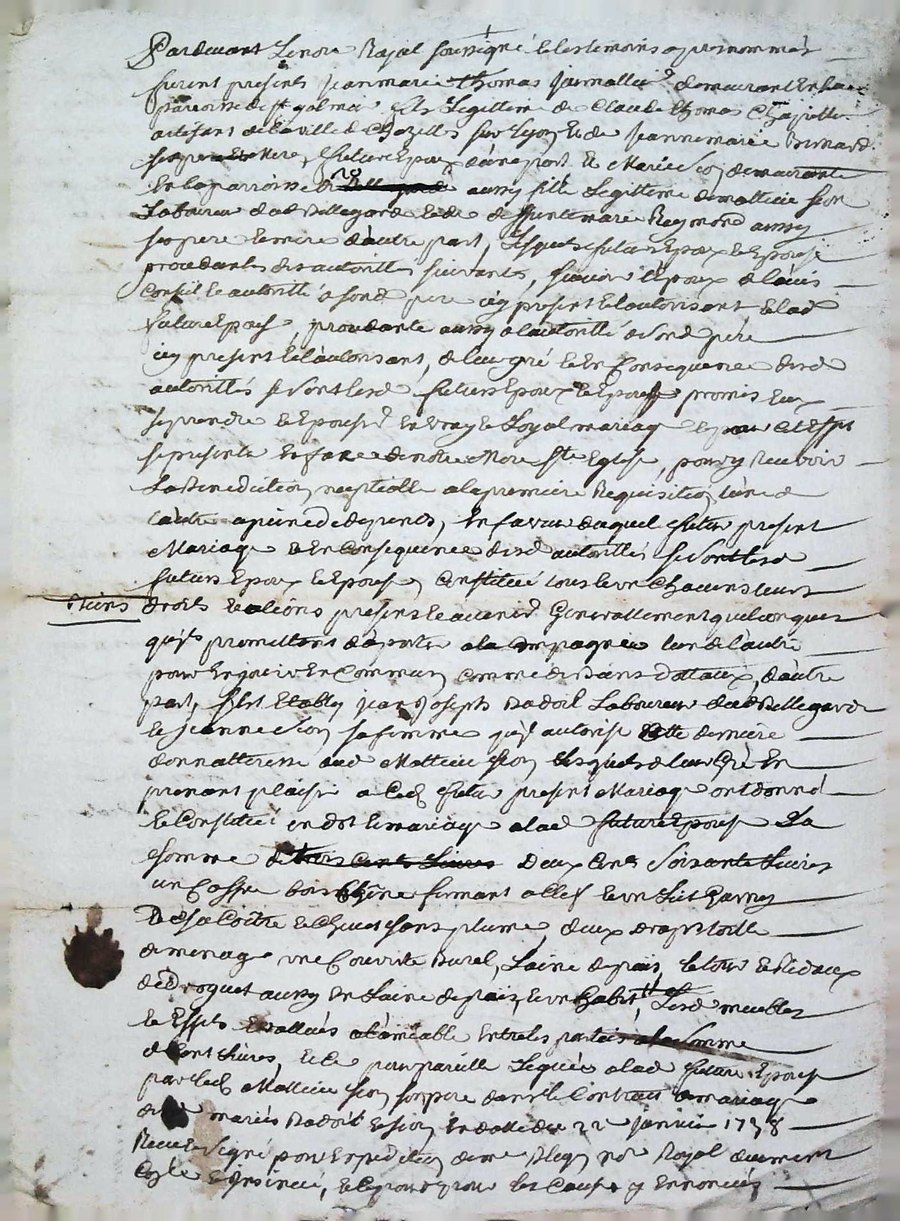 Pardevant Lenore Royal soussigné et les temoins apres nommés
furent presents Jean marie thomas demeurant en la
parroisse de st galmier fils Legittime de Claude thomas Chapelle
artisant de la ville de Chazelles sur Lyon et de Jeanne marie Bernard
ses pere et Mere, futur Epoux d'une part Et Marie Sion demeurante
En la parroisse de aussy fille Legittime de mattieu Sion
Laboureur dud Bellegarde et de deffunte marie Reymond aussy
ses pere et mere d'autre part, Lesquels futurs Epoux et Epouse
procedants des autorittés suivantes, scavoir l'Epoux de l'avis
Conseil et autoritté de sond pere icy present et l'autorisant et lad
future Epouse, procedante aussy de l'autoritté de sond pere
icy present et l'autorisant, de leur gré et en Consequence desd
autorittés se sont lesd futurs Epoux et Epouse promis Eux
se prendre et Epouser en vray et Loyal mariage et pour cet Effet
se presenter En face de notre Mere Ste Eglise, pour y Recevoir
La Benediction nuptialle a la premiere Requisition l'un de
l'autre a peine de depends, En faveur duquel futur present
Mariage et En Consequence desd autorittés se sont lesd
futurs Epoux et Epouse Constitué tous et un Chacuns leurs
biens droits et actions presents et avenir Generallement quelconques
qu'ils promettons d'aporter a la Compagnie l'un de l'autre
pour En jouir En Commun Comme de biens Dottaux, d'autre
part, s'est Etably Jean Joseph Badoil Laboureur dud Bellegarde
et Jeanne Sion sa femme qu'il autorise Cette derniere
dud Mattieu Sion Lesquels de leur Gré En
prenant plaisir a Ced futur present Mariage ont donné
et Constitué en dot et mariage a lad future Epouse La
somme de trois Cents Livres deux Cents Soixante Livres
un Coffre bois Chêne fermant a Clef et un Lit Garny
De sa Coître et Chevet sans plume deux draps toille
de menage une Couverte Burel, Laine de pais, le tour et Rideaux
de Droguet aussy En Laine de pais, et un habit, Lesd meubles
et Effets Evallués a l'amiable Entre les parties a la somme
de Cent Livres, et de pour pareille Leguée a lad future Epouse
par led Mattieu Sion son pere dans le Contrat de mariage
desd mariés Badoil et Sion En datte du 22 janvier 1778
Receu et signé pour Expedition de me Regny nore Royal duement
Collé et Insinué, et ce pour et pour les Causes y Enoncées